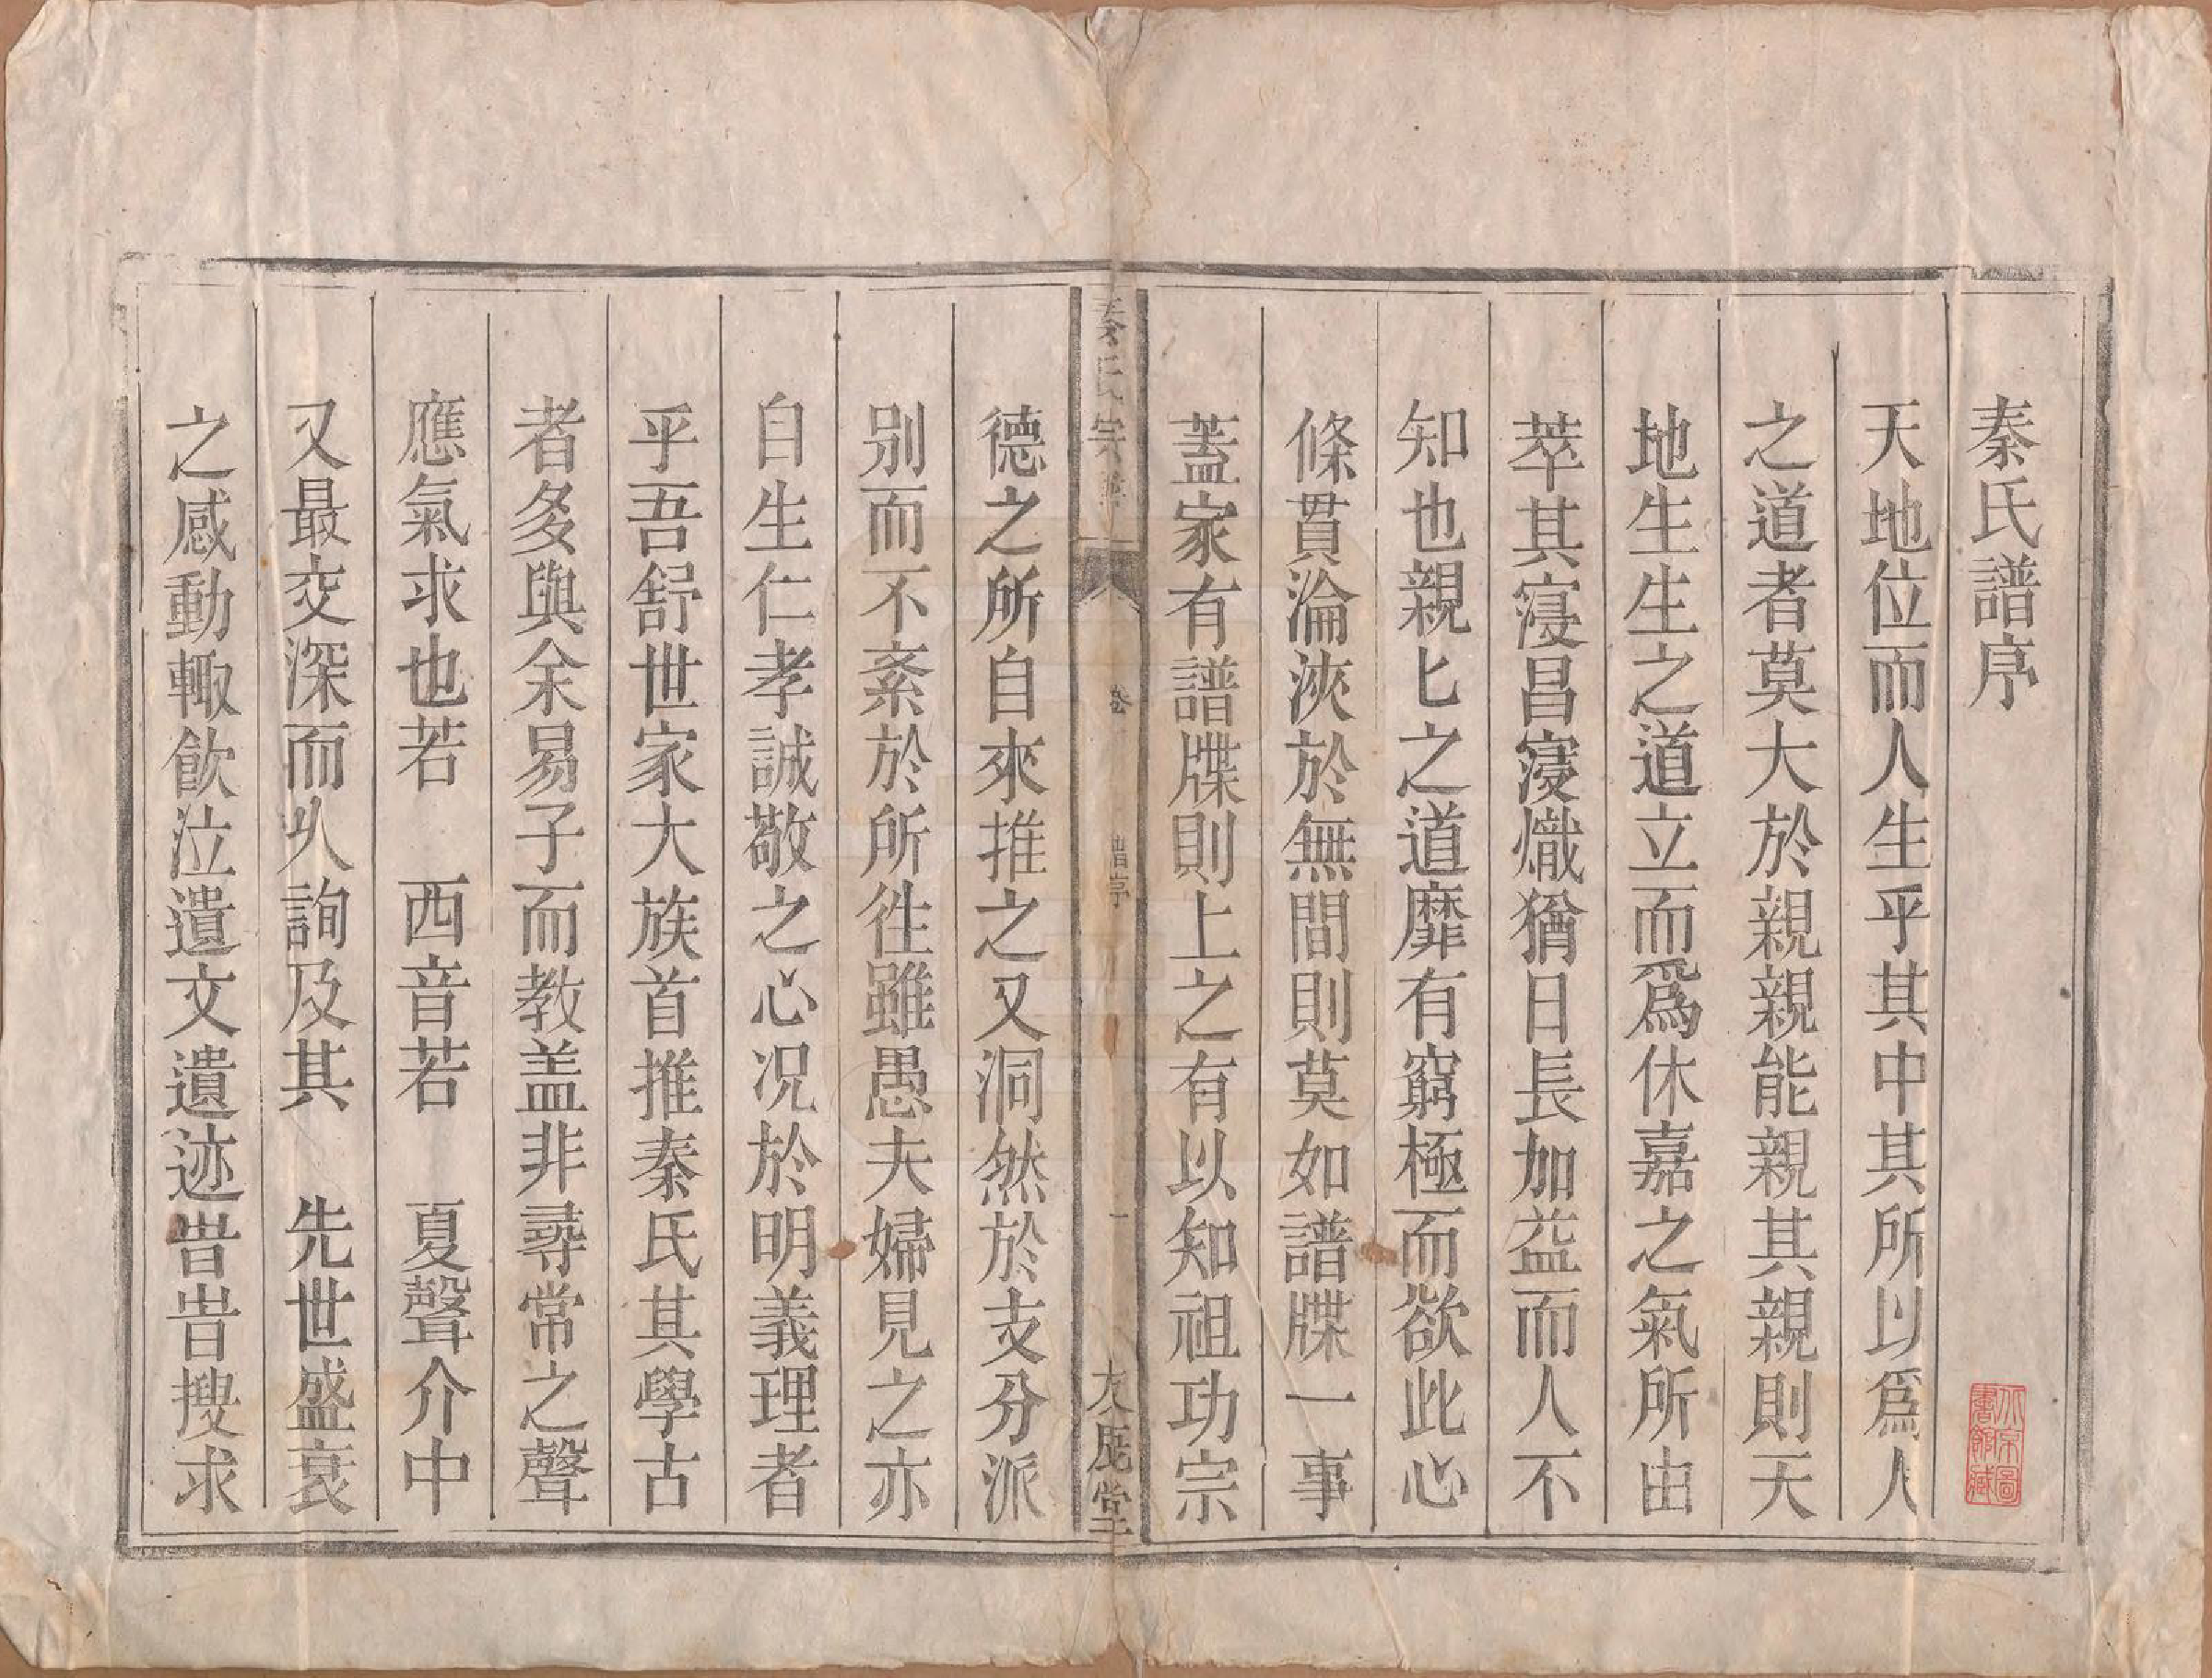 秦氏譜序
天地位而人生乎其中其所以爲人
之道者莫大於親親能親其親則天
地生生之道立而爲休嘉之氣所由
萃其寖昌寖熾猶日長加益而人不
知也親匕之道靡有窮極而欲此心
條貫淪浹於無間則莫如譜牒一事
蓋家有譜牒則上之有以知祖功宗
秦氏宗譜
卷一
譜序
一
友鹿堂
德之所自來推之又洞然於支分派
别而不紊於所徃雖愚夫婦見之亦
自生仁孝誠敬之心况於明義理者
乎吾舒世家大族首推秦氏其學古
者多與余易子而教盖非尋常之聲
應氣求也若 西音若 夏聲介中
又最交深而乆詢及其 先世盛衰
之感動輙飮泣遺文遺迹昔昔搜求
北京圖書館藏